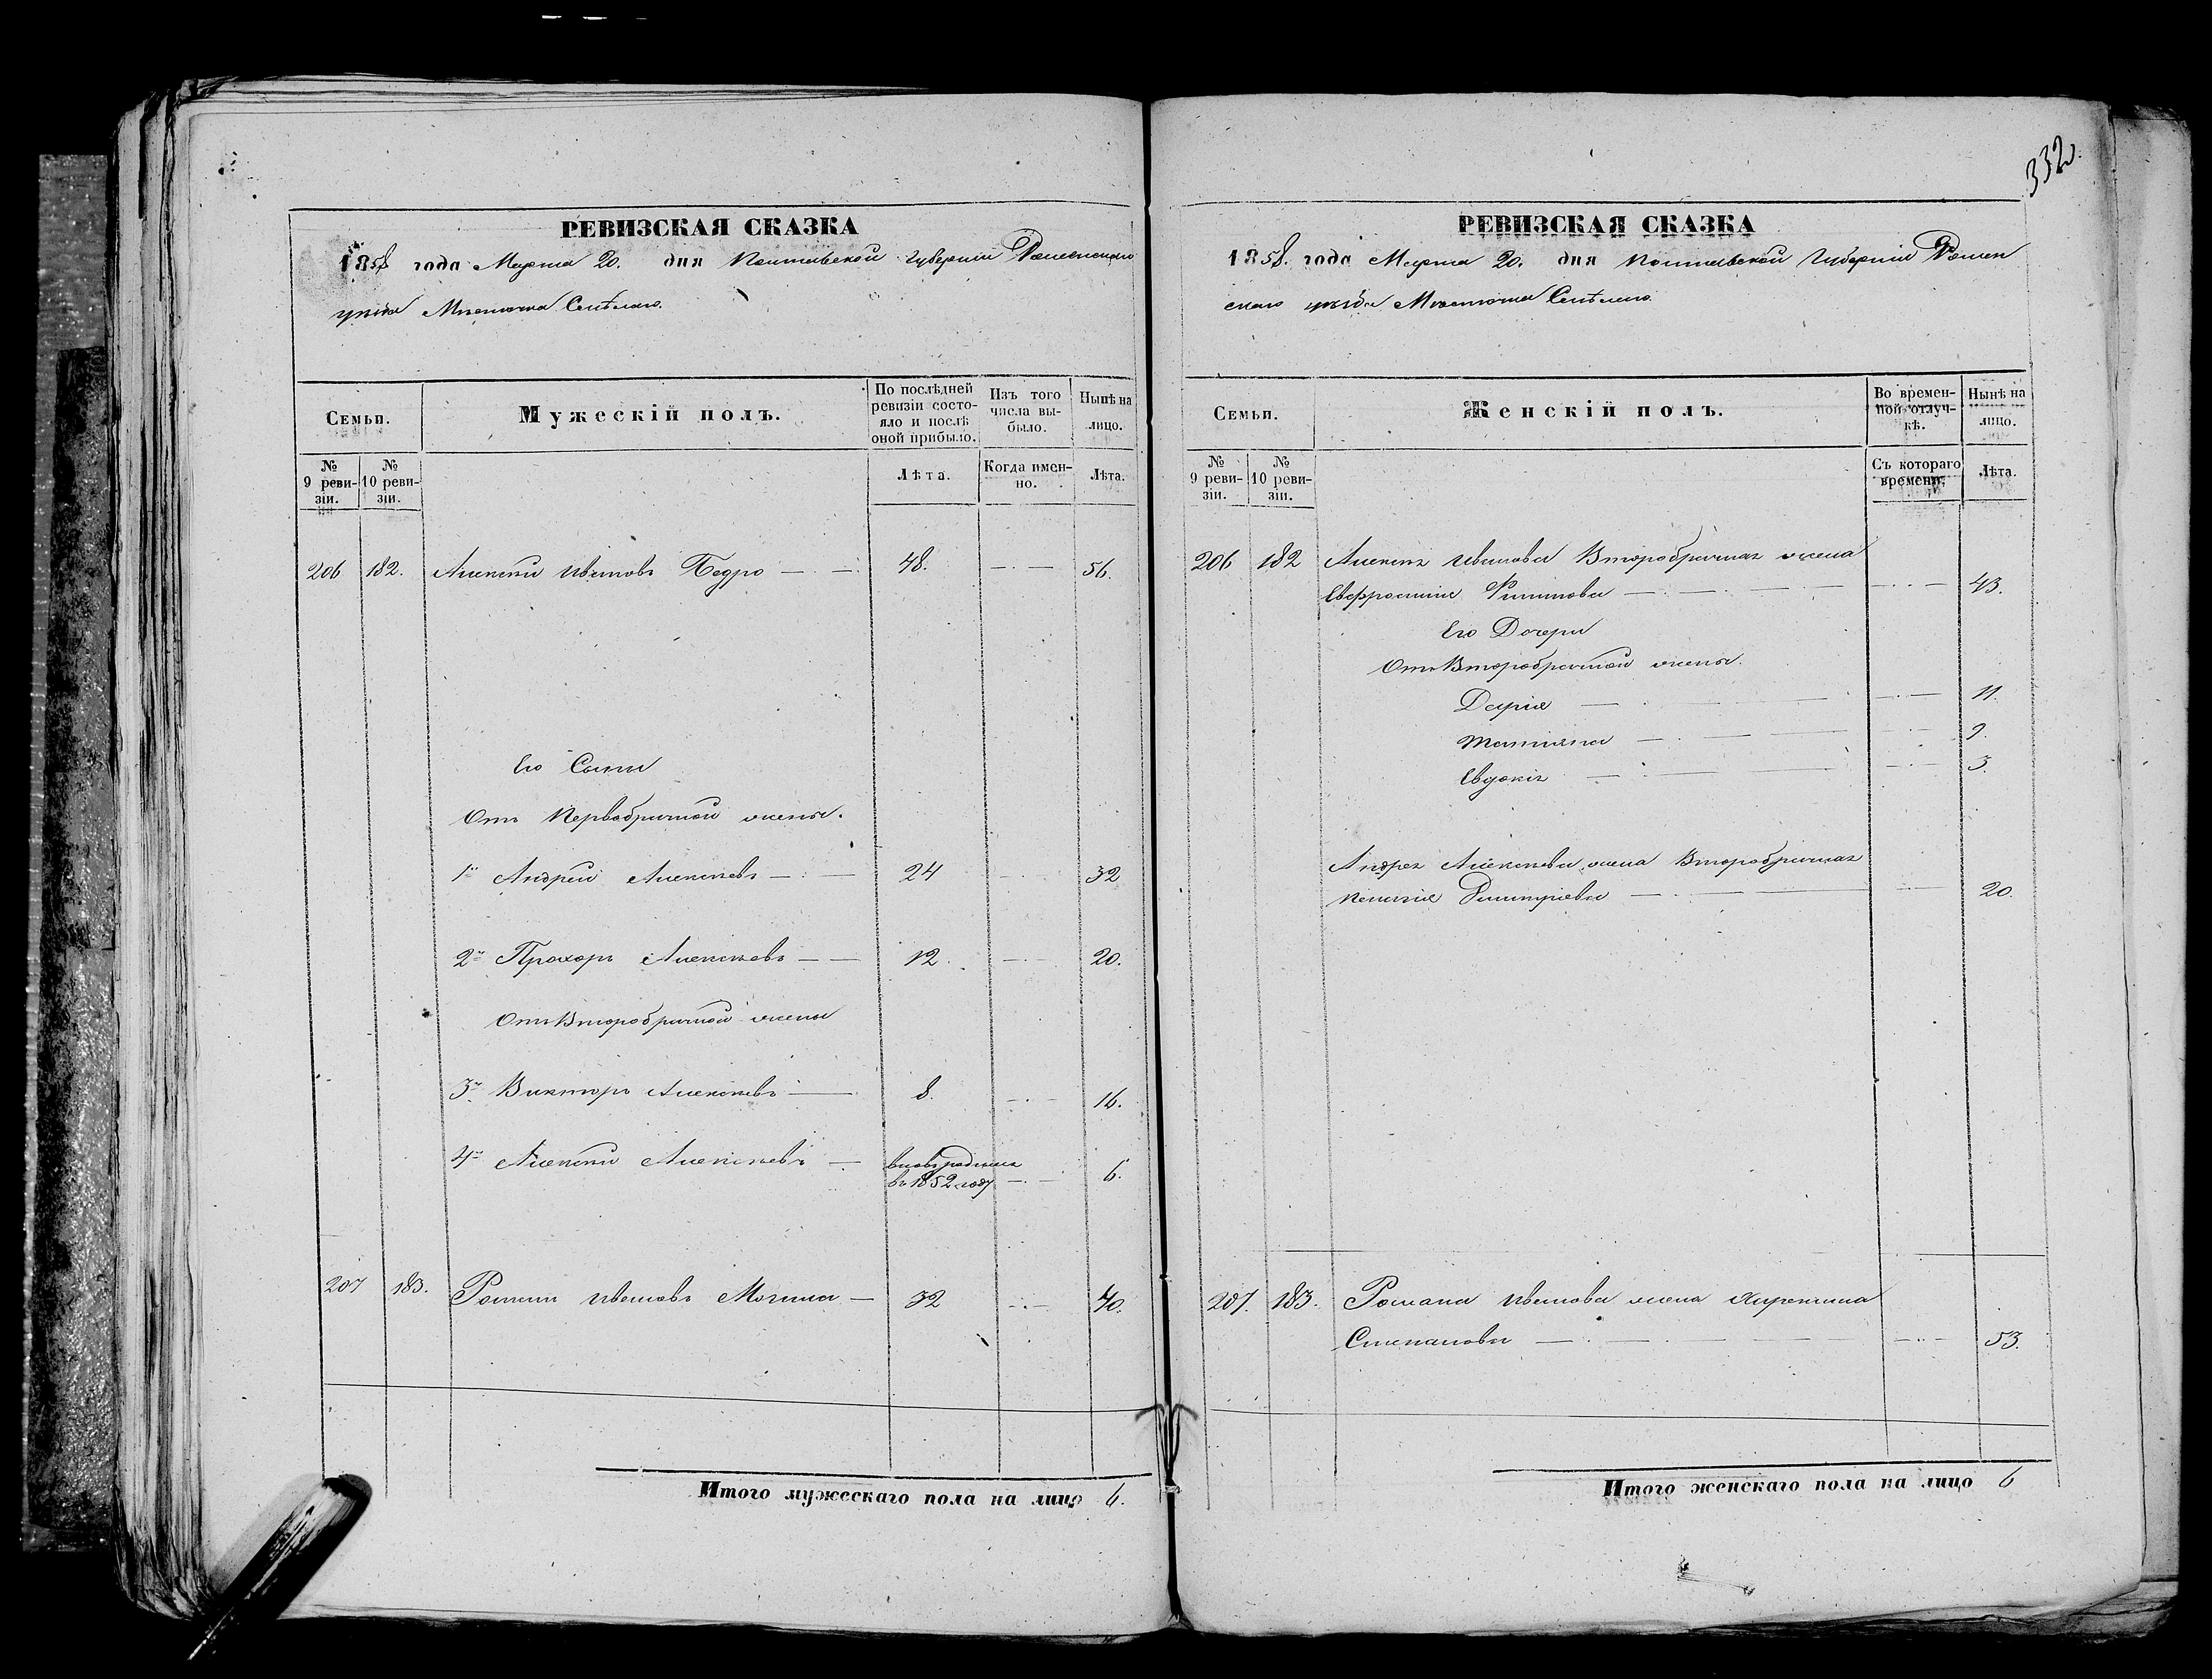 332.
РЕВИЗСКАЯ СКАЗКА
1858 года Марта 20. дня Полтавской губернiи Роменскаго
уѣзда Мѣстечка Смѣлаго.
Семьи.
Мужескiй полъ.
По послѣдней ревизiи состо-
яло и послѣ
оной прибыло.
Изъ того
числа вы-
было.
Нынѣ на
лицо.
№
9 реви-
зiи.
№
10 реви-
зiи.
Лѣта.
Когда имен-
но.
Лѣта.
206 182. Алексѣй Ивановъ Бедро — — 48. — — 56.
Его Сыны
Отъ Первобрачной жены.
1й Андрей Алексѣевъ — 24 — 32
2й Прохоръ Алексѣевъ — — 12. — 20.
Отъ Второбрачной жены
3й Викторъ Алексѣевъ — 8. — 16.
4й Алексѣй Алексѣевъ — вновь родился
въ 1852 году — 6.
207 183. Романъ Ивановъ Могила — 32 — 40.
Итого мужескаго пола на лицо 6.
РЕВИЗСКАЯ СКАЗКА
1858. года Марта 20. дня Полтавской Губернiи Ромен
скаго уѣзда Мѣстечка Смѣлаго.
Семьи.
Женскiй полъ.
Во времен-
ной отлуч-
кѣ.
Нынѣ на
лицо.
№
9 реви-
зiи.
№
10 реви-
зiи.
Съ котораго
времени.
Лѣта.
206 182 Алексѣя Иванова Второбрачная жена
Евфросинiя Филипова — — 43.
Его Дочери
Отъ Второбрачной жены.
Дарiя — — 11.
Татiяна — — 9.
Евдокiя — — 3.
Андрея Алексѣева жена Второбрачная
Пелагiя Димитрiева — — 20.
207. 183. Романа Иванова жена
Степанова — — 53.
Итого женскаго пола на лицо 6